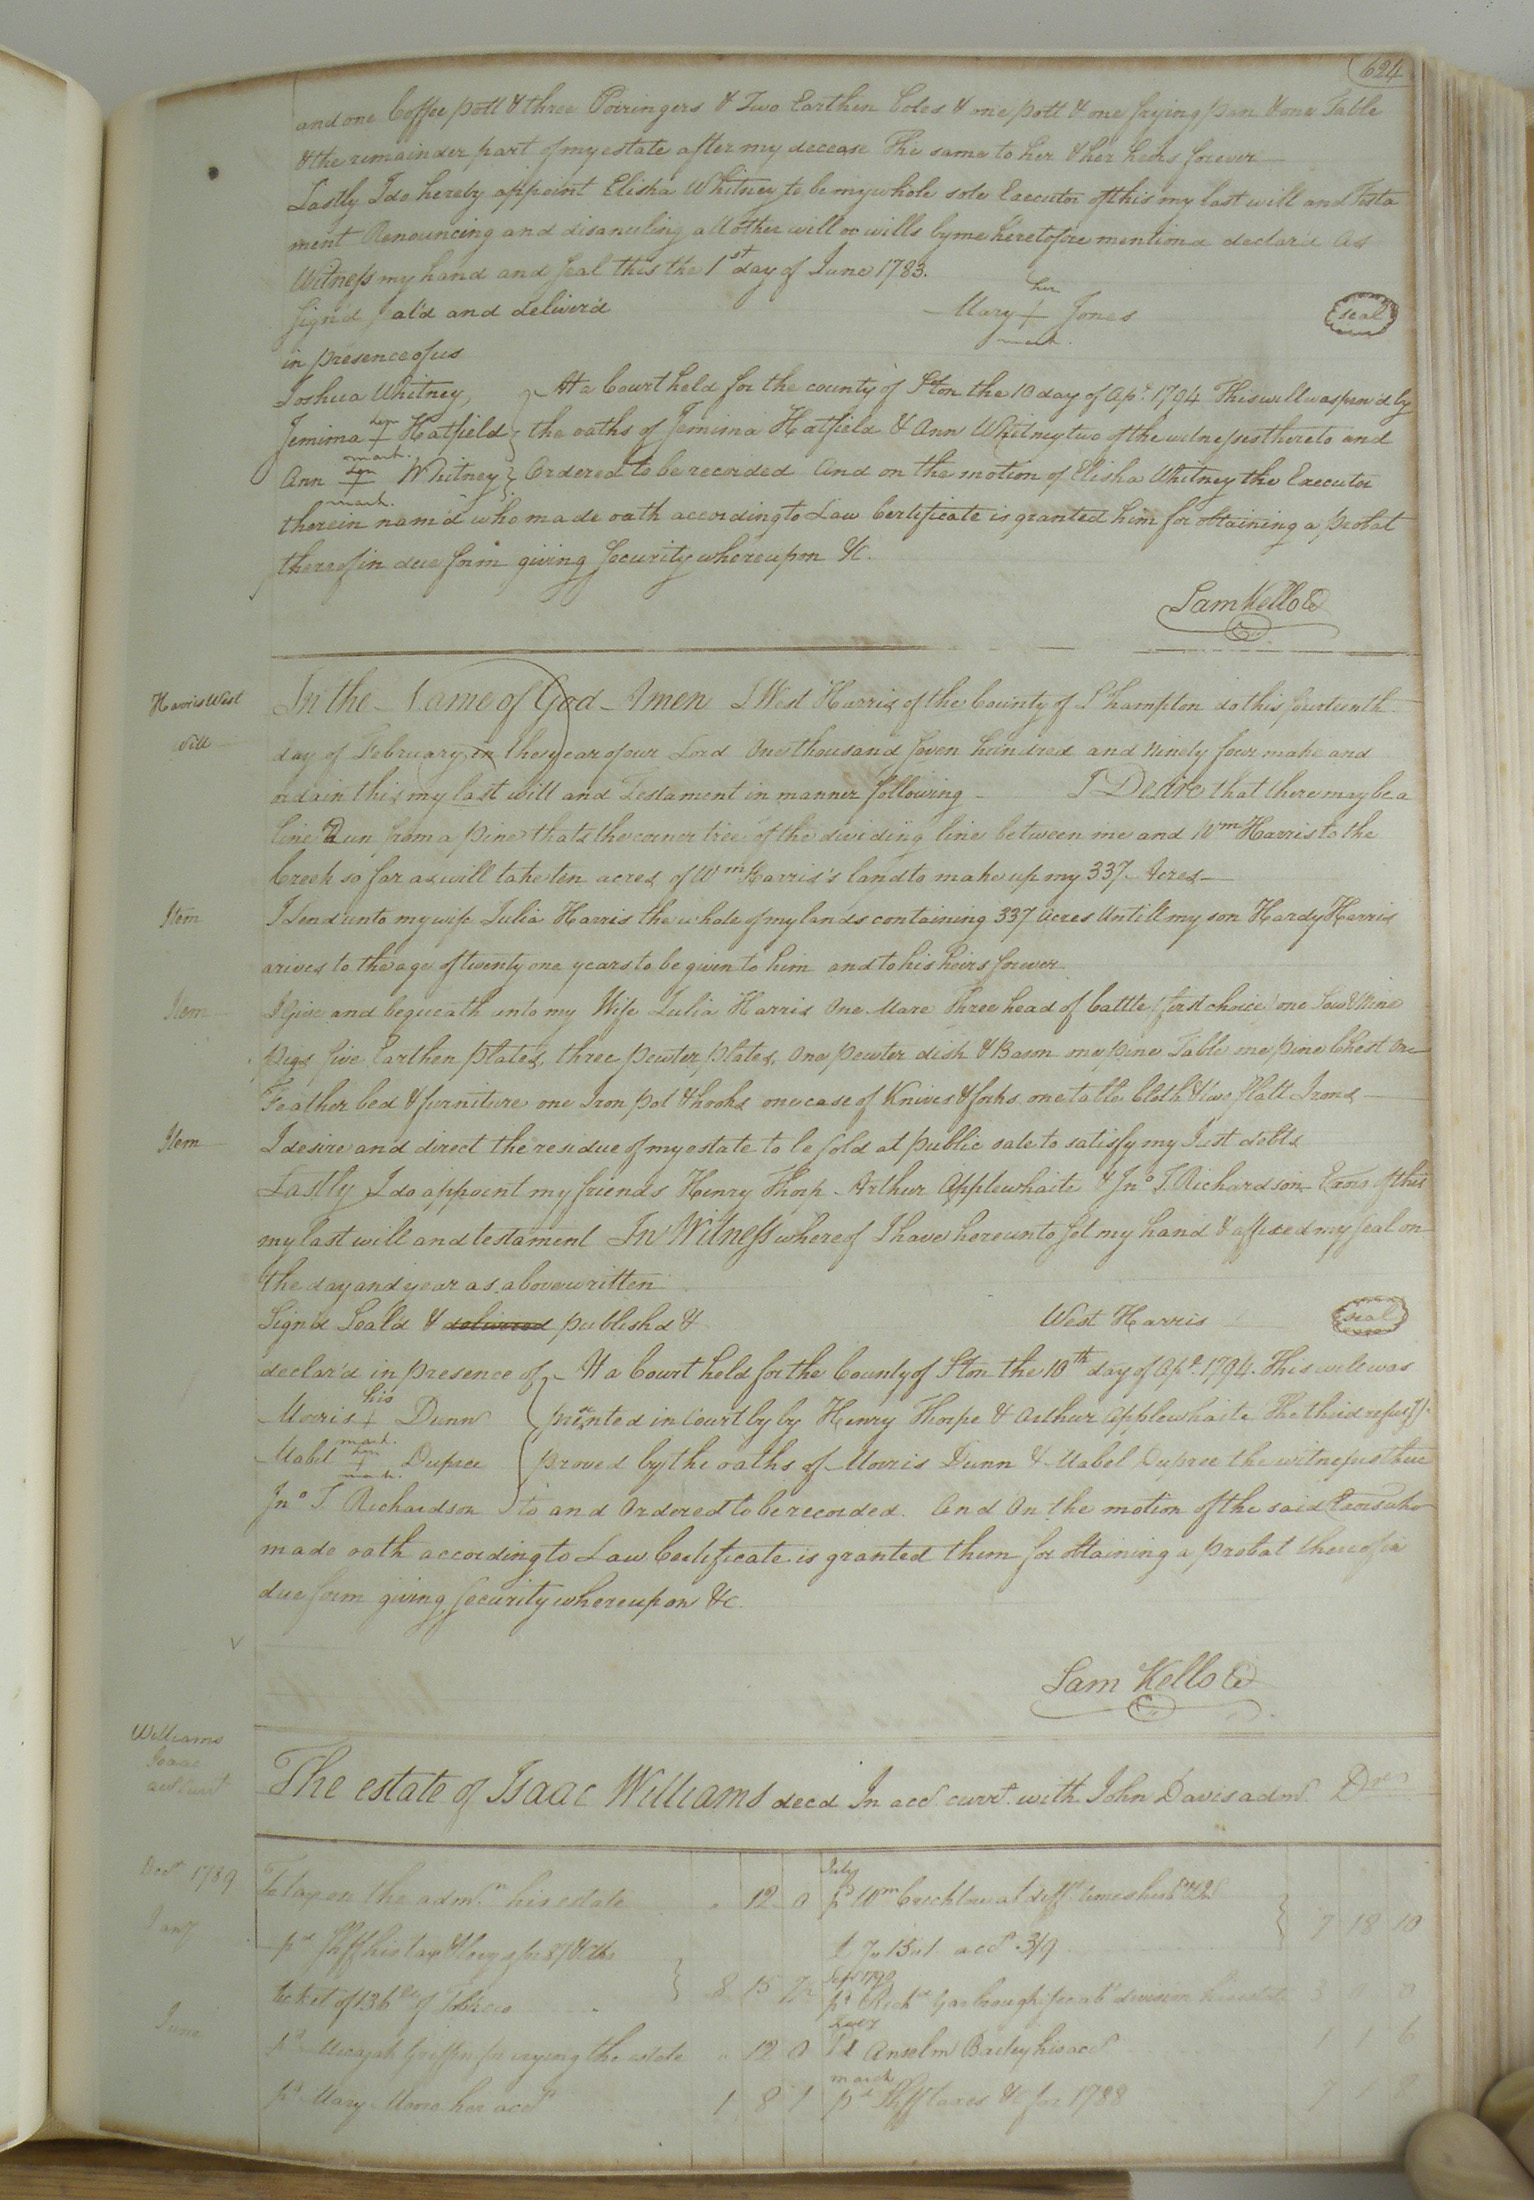 624
and one Coffee pott & three Poringers & Two Earthen Coles & one pott & one frying pan & one Table
& the remainder part of my estate after my decease The same to her & her heirs forever
Lastly I do hereby appoint Elisha Whitney to be my whole sole Executor of this my last will and Testa
ment Renouncing and disanuling all other will or wills by me heretofore mentiond declar'd As
Witness my hand and seal this the 1st day of June 1783.
Sign'd Seal'd and deliver'd
her
Mary + Jones
mark.
seal
in presence of us
Joshua Whitney,
At a Court held for the county of S'ton the 10 day of Apl. 1794 This will was prov'd by
Jemima her + mark. Hatfield
the oaths of Jemima Hatfield & Ann Whitney two of the witnesses thereto and
Ann her + mark. Whitney
Ordered to be recorded And on the motion of Elisha Whitney the Executor
therein nam'd who made oath according to Law Certificate is granted him for obtaining a probat
thereof in due form giving security whereupon &c.
Sam Kello Cl
Harris West
Will
In the Name of God Amen I West Harris of the County of S'hampton do this fourteenth
day of February in the year of our Lord One thousand Seven hundred and ninely four make and
ordain this my last will and Testament in manner following I Desire that there may be a
line Run from a pine thats the corner tree of the dividing line between me and Wm Harris to the
Creek so far as will take ten acres of Wm Harris's land to make up my 337 Acres
Item
I Lend unto my wife Julia Harris the whole of my lands containing 337 Acres Untill my son Hardy Harris
arives to the age of twenty one years to be given to him and to his heirs forever
Item
I Give and bequeath unto my Wife Julia Harris One Mare Three head of Cattle first choice one Sow & Nine
Pigs five Earthen plates, three pewter plates, One pewter dish & Bason my pine Table one pine Chest One
Feather bed & furniture one Iron pot & hooks one case of Knives & forks one table Cloth & two flatt Irons
Item
I desire and direct the residue of my estate to be sold at public sale to satisfy my Just debts
Lastly I do appoint my friends Henry Thorp Arthur Applewhaite & Jno T. Richardson Exors of this
my last will and testament In Witness whereof I have hereunto set my hand & affixed my seal on
the day and year as above written
Sign'd Seal'd & delivered publishd &
West Harris
seal
declar'd in presence of
At a Court held for the County of S'ton the 10th day of Apl. 1794. This will was
Morris his + mark. Dunn
prented in Court by by Henry Thorpe & Arthur Applewhaite The third refusg.
Mabel her + mark. Dupree
proved by the oaths of Morris Dunn & Mabel Dupree the witnesses there
Jno T. Richardson
to and Ordered to be recorded. And On the motion of the said Exors who
made oath according to Law Certificate is granted them for obtaining a probat thereof in
due form giving security whereupon &c.
Sam Kello Cl
Williams
Isaac
acct Curt
The estate of Isaac Williams decd In acct. currt. with John Davis admr. Dr
Decr 1789
To tax on the admn. his estate 12 0
July
pd Wm at difft. times
7 18 10
Jany
pd Shff his tax
acct 3/9
ticket of 136 lb of Tobacco
8 15
Sept 1790
pd Richd division his estate 3 0 0
June
pd Micajah Griffin for crying the estate 12 0
pd Anselm Bailey his acct 1 1 6
pd Mary Moore her acct 1 8 1
March
pd Shff taxes &c for 1788